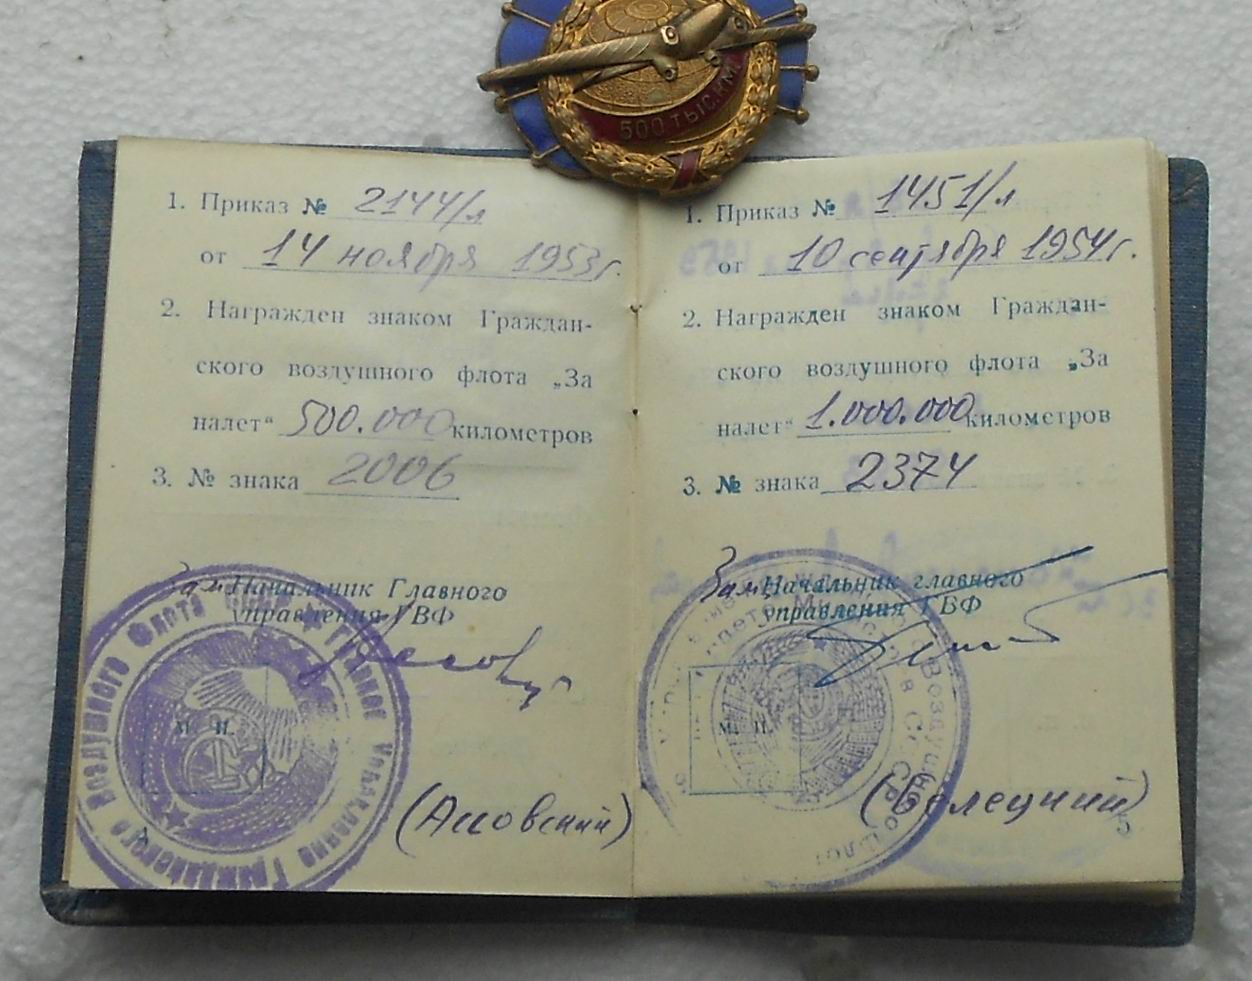 500 ТЫС.КМ
1. Приказ № 2144/л
от 14 ноября 1953г.
2. Награжден знаком Граждан-
ского воздушного флота „За
налет“ 500.000 километров
3. № знака 2006
Зам Начальник Главного
управления ГВФ
М. П.
Главное Управление Гражданского Воздушного Флота
1. Приказ № 1451/л
от 10 сентября 1954г.
2. Награжден знаком Граждан-
ского воздушного флота „За
налет“ 1.000.000 километров
3. № знака 2374
Зам. Начальник главного
управления ГВФ
М. П.
(Белецкий)